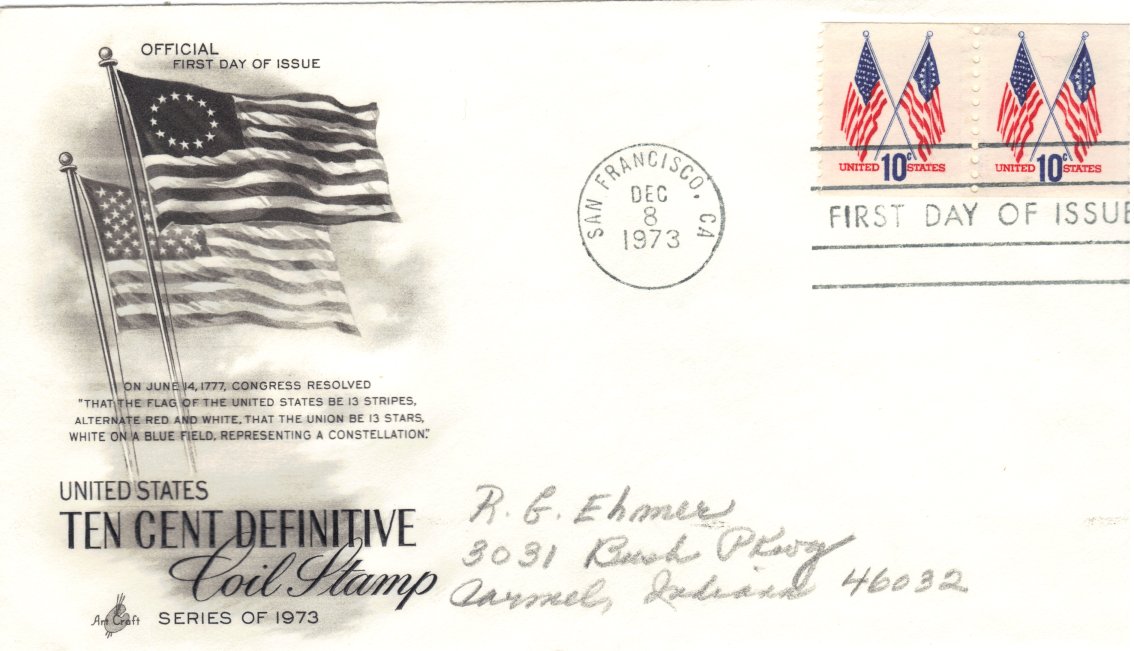 OFFICIAL
FIRST DAY OF ISSUE
ON JUNE 14, 1777, CONGRESS RESOLVED
"THAT THE FLAG OF THE UNITED STATES BE 13 STRIPES,
ALTERNATE RED AND WHITE, THAT THE UNION BE 13 STARS,
WHITE ON A BLUE FIELD, REPRESENTING A CONSTELLATION."
UNITED STATES
TEN CENT DEFINITIVE
Coil Stamp
Art Craft SERIES OF 1973
SAN FRANCISCO, CA
DEC
8
1973
UNITED 10c STATES
UNITED 10c STATES
FIRST DAY OF ISSUE
R. G. Ehmer
3031 Bush Pkwy
Carmel, Indiana 46032